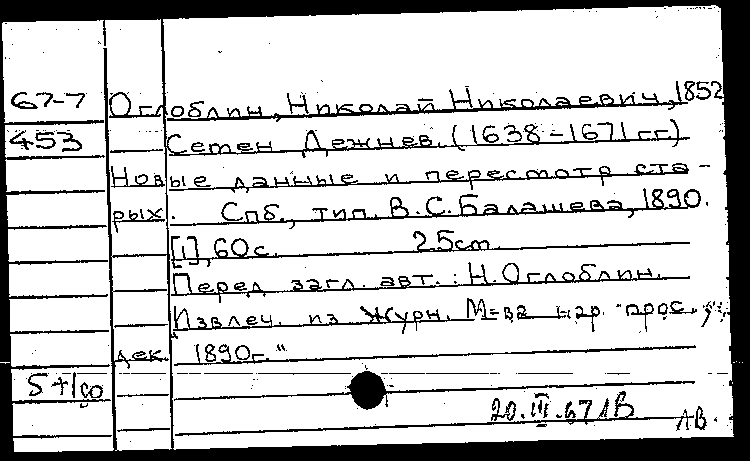 67-7 Оглоблин, Николай Николаевич, 1852
453 Семен Дежнев. (1638-1671 гг)
Новые данные и пересмотр ста-
рых. Спб., тип. В.С. Балашева, 1890.
[1], 60 с. 25 cm.
Перед загл. авт.: Н. Оглоблин.
Извлеч. из Журн. М-ва нар. прос.
дек. 1890г."
20.III.67 ЛВ
ЛВ.